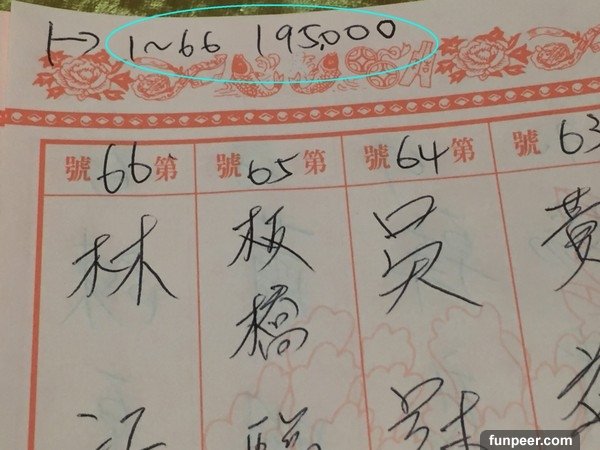 1~66 195,000
號63
黃
第64號
吳
第65號
板橋
第66號
林
funpeer.com